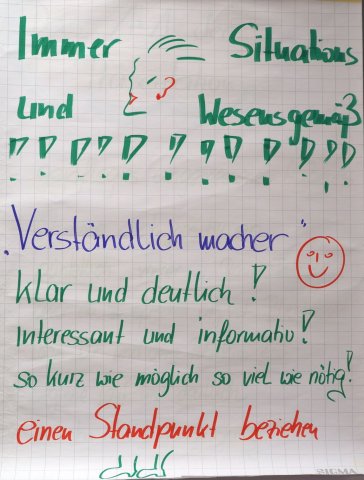 Immer Situations
und Wesensgemäß
! ! ! ! ! ! ! ! ! ! ! !
„Verständlich macher"
klar und deutlich!
Interessant und informativ!
so kurz wie möglich so viel wie nötig!
einen Standpunkt beziehen
SIGMA